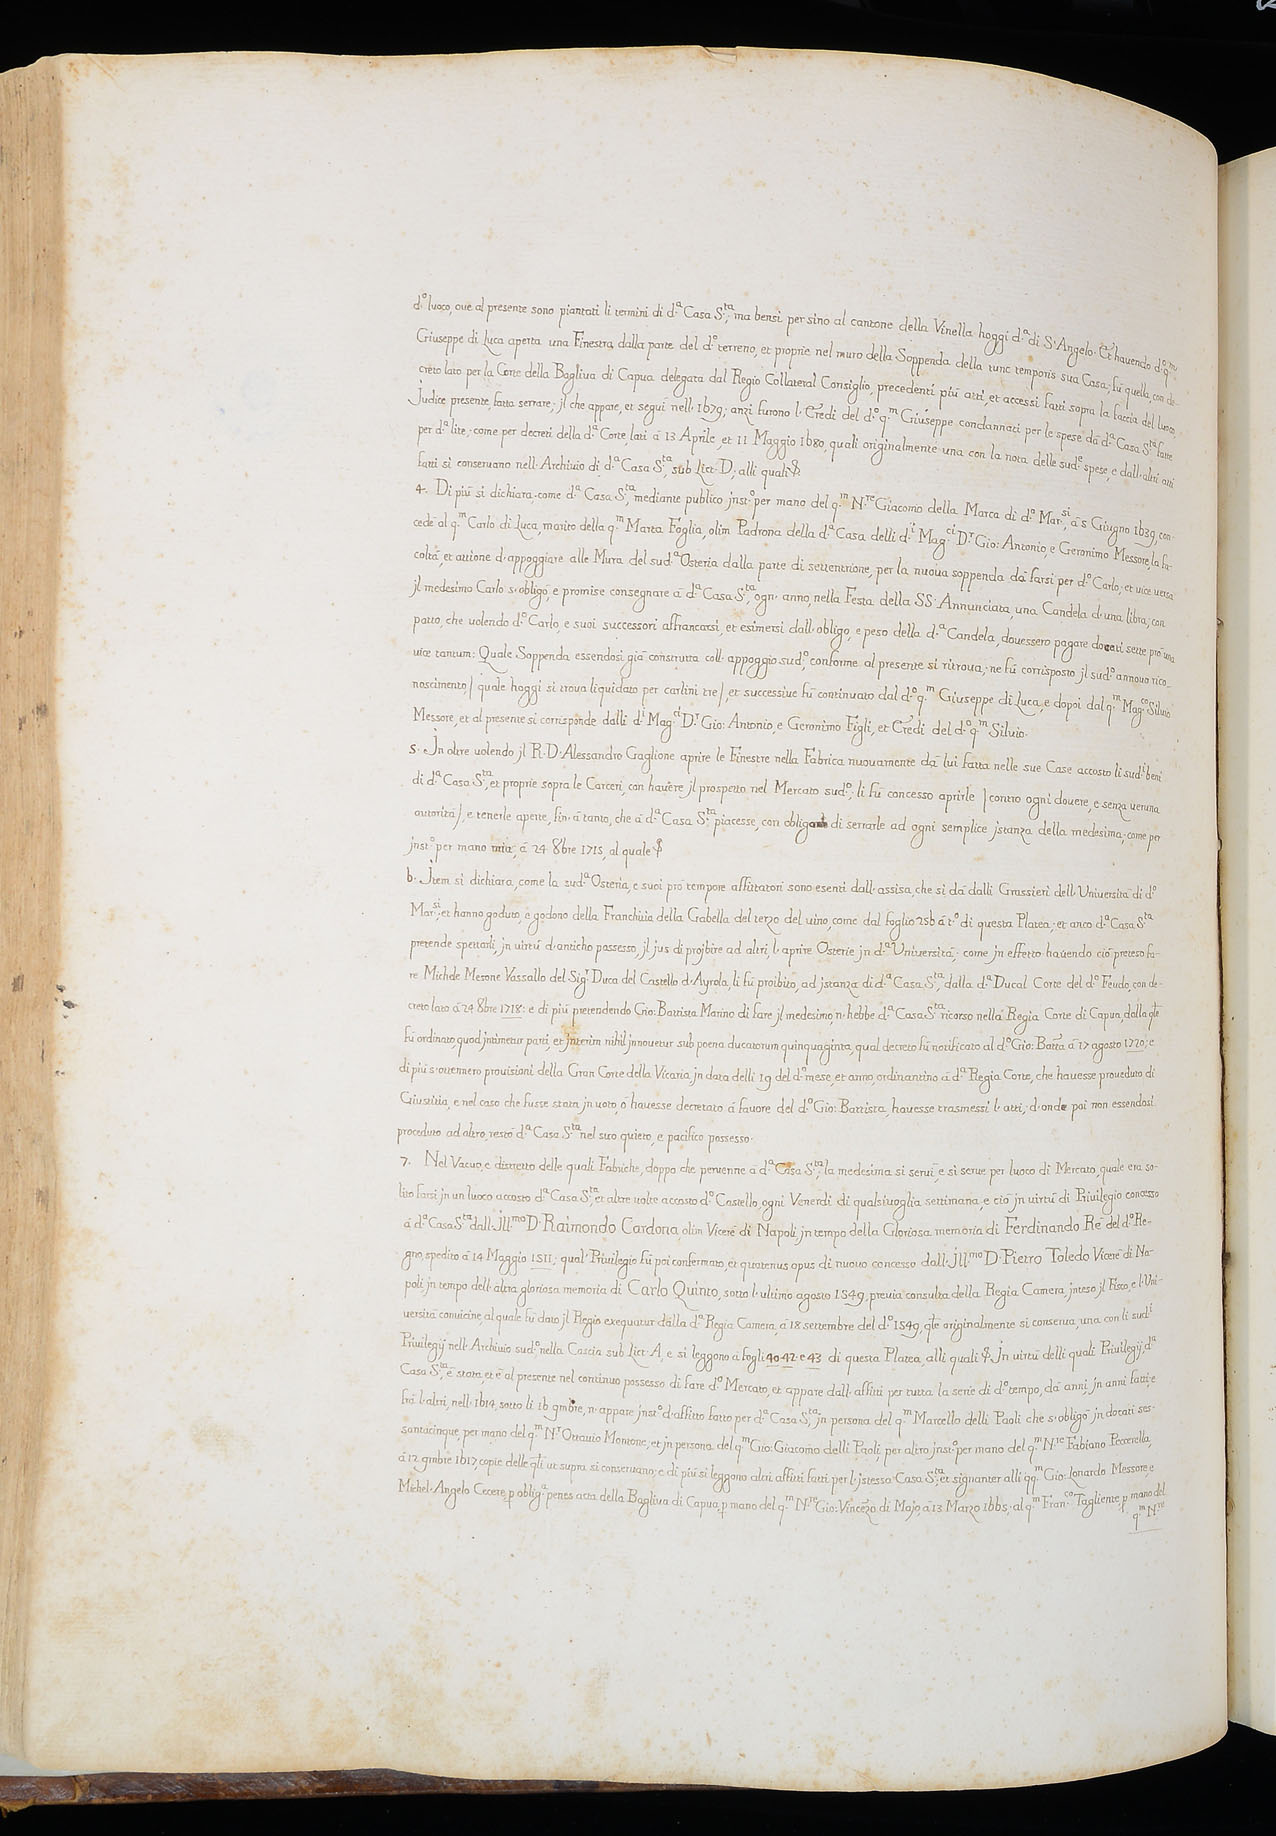 d.º luoco, oue al presente sono piantati li termini di d.ª Casa S.ta, ma bensì per sino al cantone della Vinella hoggi d.ª di S. Angelo. Et hauendo d.º q.m
Giuseppe di Luca aperta una Finestra dalla parte del d.º terreno, et proprie nel muro della Soppenda della tunc temporis sua Casa; fù quella, con de-
creto lato per la Corte della Bagliua di Capua delegata dal Regio Collateral Consiglio, precedenti più atti, et accessi fatti sopra la faccia del luoco
Judice presente, fatta serrare; jl che appare, et seguì nell. 1679; anzi furono l. Eredi del d.º q.m Giuseppe condannati per le spese dà d.ª Casa S.ta fatte
per d.ª lite; come per decreti della d.ª Corte, lati à 13 Aprile, et 11 Maggio 1680, quali originalmente una con la nota delle sud.e spese, e dall. altri atti
fatti si conseruano nell. Archiuio di d.ª Casa S.ta, sub Lict. D; alli quali &
4. Di più si dichiara, come d.ª Casa S.ta, mediante publico jnst.º per mano del q.m N.re Giacomo della Marca di d.º Mar.si, à 5 Giugno 1639, con-
cedè al q.m Carlo di Luca, marito della q.m Marta Foglia, olim Padrona della d.ª Casa delli d.i Mag.ci D.r Gio: Antonio, e Geronimo Messore, la fa-
coltà, et attione d. appoggiare alle Mura del sud.ª Osteria dalla parte di settentrione, per la nuoua soppenda dà farsi per d.º Carlo; et vice versa
jl medesimo Carlo s. obligò, e promise consegnare à d.ª Casa S.ta, ogn. anno, nella Festa della SS. Annunciata, una Candela d. una libra; con
patto, che uolendo d.º Carlo, e suoi successori affrancarsi, et esimersi dall. obligo, e peso della d.ª Candela, douessero pagare docati sette prò una
vice tantum: Quale Soppenda essendosi già construtta coll. appoggio sud.º conforme al presente si ritroua; ne fù corrisposto jl sud.º annouo rico-
noscimento / quale hoggi si troua liquidato per carlini tre /, et successiue fù continuato dal d.º q.m Giuseppe di Luca, e dopoi dal q.m Mag.co Siluio
Messore, et al presente si corrisponde dalli d.i Mag.ci D.r Gio: Antonio, e Geronimo Figli, et Eredi del d.º q.m Siluio.
5. Jn oltre uolendo jl R. D. Alessandro Gaglione aprire le Finestre nella Fabrica nuouamente dà lui fatta nelle sue Case accosto li sud.i beni
di d.ª Casa S.ta, et proprie sopra le Carceri, con hauère jl prospetto nel Mercato sud.º; li fù concesso aprirle / contro ogni douere, e senza ueruna
autorità /, e tenerle aperte, fin. à tanto, che à d.ª Casa S.ta piacesse, con obligarsi di serrarle ad ogni semplice jstanza della medesima; come per
jnst.º per mano mia, à 24 8bre 1715, al quale &
6. Jtem si dichiara, come la sud.ª Osteria, e suoi prò tempore affittatori sono esenti dall. assisa, che si dà dalli Grassieri dell. Università di d.º
Mar.si, et hanno goduto, e godono della Franchitia della Gabella del terzo del uino, come dal foglio 256 à t.º di questa Platea; et anco d.ª Casa S.ta
pretende spettarli, jn uirtù d. anticho possesso, jl jus di projbire ad altri, l. aprire Osterie jn d.ª Università; come jn effetto hauendo ciò preteso fa-
re Michele Mesone Vassallo del Sig.r Duca del Castello d. Ayrola, li fù proibito, ad jstanza di d.ª Casa S.ta, dalla d.ª Ducal Corte del d.º Feudo, con de-
creto lato à 24 8bre 1718: e di più pretendendo Gio: Battista Marino di fare jl medesimo, n. hebbe d.ª Casa S.ta ricorso nella Regia Corte di Capua, dalla q̃le
fù ordinato, quod jntimetur parti, et jnterim nihil jnnouetur sub poena ducatorum quinquaginta, qual decreto fù notificato al d.º Gio: Batt̃a à 17 agosto 1720; e
di più s. ottennero prouisioni della Gran Corte della Vicaria, jn data delli 19 del d.º mese, et anno, ordinantino à d.ª Regia Corte, che hauesse proueduto di
Giustitia, e nel caso che fusse stata jn uoto, ò hauesse decretato à fauore del d.º Gio: Battista, hauesse trasmessi l. atti; d. onde poi non essendosi
proceduto ad altro, restò d.ª Casa S.ta nel suo quieto, e pacifico possesso.
7. Nel Vacuo, e distretto delle quali Fabriche, doppo che peruenne à d.ª Casa S.ta, la medesima si seruì, e si serue per luoco di Mercato, quale era so-
lito farsi jn un luoco accosto d.ª Casa S.ta, et altre uolte accosto d.º Castello, ogni Venerdì di qualsiuoglia settimana, e ciò jn uirtù di Priuilegio concesso
à d.ª Casa S.ta dall. Jll.mo D. Raimondo Cardona, olim Vicerè di Napoli, jn tempo della Gloriosa memoria di Ferdinando Rè del d.º Re-
gno, spedito à 14 Maggio 1511; qual Priuilegio fù poi confermato, et quatenus opus di nuouo concesso dall. Jll.mo D. Pietro Toledo Vicerè di Na-
poli, jn tempo dell. altra gloriosa memoria di Carlo Quinto, sotto l. ultimo agosto 1549, preuia consulta della Regia Camera, jnteso jl Fisco, e l. Uni-
uersità conuicine, al quale fù dato jl Regio exequatur dalla d.ª Regia Camera, à 18 settembre del d.º 1549, q̃le originalmente si conserua, una con li sud.i
Priuilegij nell. Archiuio sud.º nella Cascia sub Lict. A, e si leggono à fogli 40. 42. e 43 di questa Platea, alli quali & Jn uirtù delli quali Priuilegij, d.ª
Casa S.ta, è stata, et è al presente nel continuo possesso di fare d.º Mercato, et appare dall. affitti per tutta la serie di d.º tempo, dà anni, jn anni fatti; e
frà l. altri, nell. 1614, sotto li 16 9mbre, n. appare jnst.º d. affitto fatto per d.ª Casa S.ta, jn persona del q.m Marcello delli Paoli che s. obligò jn docati ses-
santacinque, per mano del q.m N.r Ottauio Montone, et jn persona del q.m Gio: Giacomo delli Paoli, per altro jnst.º per mano del q.m N.re Fabiano Peccerella,
à 12 9mbre 1617, copie delle q̃li ut supra si conseruano; e di più si leggono altri affitti fatti per l. jstessa Casa S.ta, et signanter alli qq.m Gio: Lonardo Messore, e
Michel. Angelo Cecere, p oblig.ª penes acta della Bagliua di Capua, p mano del q.m N.re Gio: Vincenzo di Majo, à 13 Marzo 1665; al q.m Fran.co Tagliente, p mano del
q.m N.re